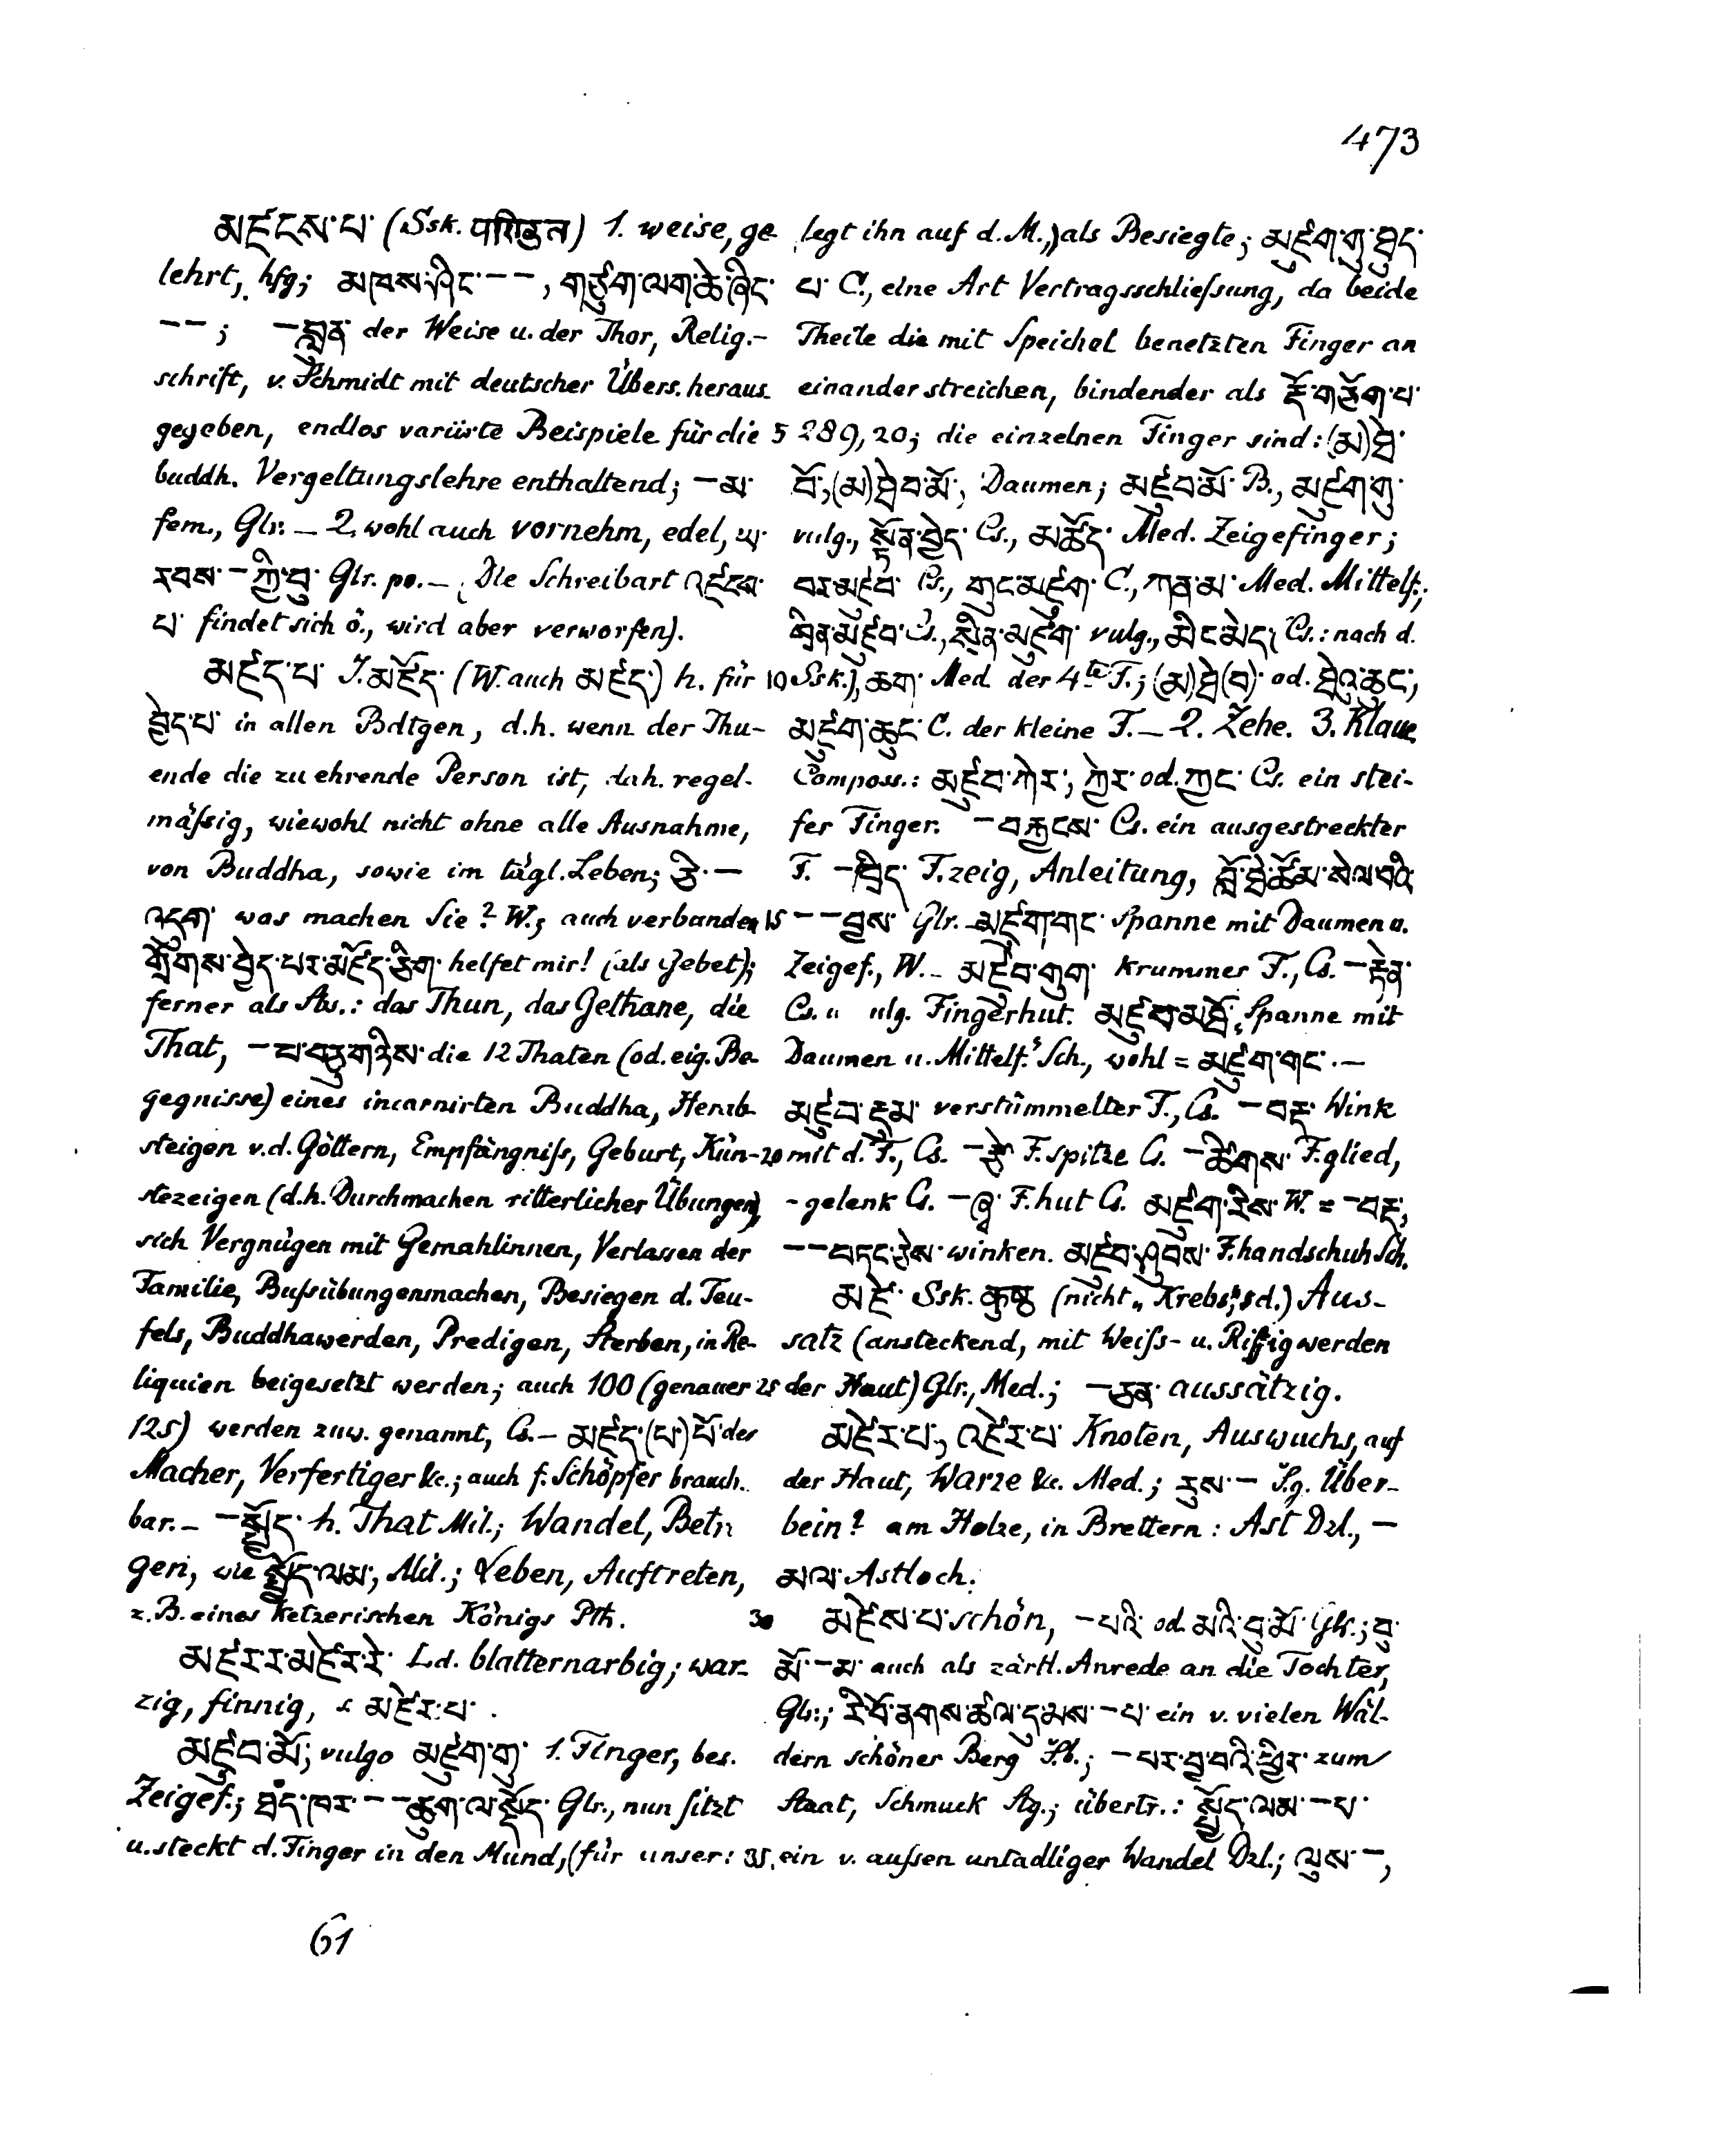 473
མཛངས་པ་ (Ssk. पण्डित) 1. weise, ge-
lehrt, hfg; མཁས་ཤིང་ – –, གཙུག་ལག་ཆེ་ཞིང་
– –; –བླུན་ der Weise u. der Thor, Relig.-
schrift, v. Schmidt mit deutscher Übers. heraus-
gegeben, endlos variirte Beispiele für die
buddh. Vergeltungslehre enthaltend; –མ་
fem., Glr. – 2. wohl auch vornehm, edel, ཡ་
རབས་ – ཀྱི་བུ་ Glr. po. – (Die Schreibart འཛངས་
པ་ findet sich ö., wird aber verworfen).
མཛད་པ་ I. མཛོད་ (W. auch མཛད་) h. für
བྱེད་པ་ in allen Bdtgen, d.h. wenn der Thu-
ende die zu ehrende Person ist, dah. regel-
mäßig, wiewohl nicht ohne alle Ausnahme,
von Buddha, sowie im tägl. Leben; ཅི་ –
འདུག་ was machen Sie? W.; auch verbunden
གྲོགས་བྱེད་པར་མཛོད་ཅིག་ helfet mir! (als Gebet);
ferner als Sbs.: das Thun, das Gethane, die
That, –པ་བཅུ་གཉིས་ die 12 Thaten (od. eig. Be-
gegnisse) eines incarnirten Buddha, Herab-
steigen v.d. Göttern, Empfängniß, Geburt, Kün-
stezeigen (d.h. Durchmachen ritterlicher Übungen),
sich Vergnügen mit Gemahlinnen, Verlassen der
Familie, Bußübungenmachen, Besiegen d. Teu-
fels, Buddhawerden, Predigen, Sterben, in Re-
liquien beigesetzt werden; auch 100 (genauer
125) werden zuw. genannt, Cs. – མཛད་(པ་)པོ་ der
Macher, Verfertiger &c.; auch f. Schöpfer brauch-
bar. – –སྤྱོད་ h. That Mil.; Wandel, Betra-
gen, wie སྤྱོད་ལམ་, Mil.; Leben, Auftreten,
z.B. eines ketzerischen Königs Pth.
མཛར་ར་མཛེར་རེ་ Ld. blatternarbig; war-
zig, finnig, s. མཛེར་པ་.
མཛུབ་མོ་, vulgo མཛུག་གུ་ 1. Finger, bes.
Zeigef.; ཐད་ཁར་ – –ཆུག་ལ་སྡོད་ Glr., nun sitzt
u. steckt d. Finger in den Mund, (für unser:
legt ihn auf d. M.,) als Besiegte; མཛུག་གུ་ཐུད་
པ་ C., eine Art Vertragsschließung, da beide
Theile die mit Speichel benetzten Finger an
einander streichen, bindender als རྡོ་གཅོག་པ་
5 289, 20; die einzelnen Finger sind: (མ)ཐེ་
བོ་, (མ)ཐེབ་མོ་, Daumen; མཛུབ་མོ་ B., མཛུག་གུ་
vulg., སྟོན་བྱེད་ Cs., མཚོད་ Med. Zeigefinger;
བར་མཛུབ་ Cs., གུང་མཛུག་ C., ཀན་མ་ Med. Mittelf.;
སྲིན་མཛུབ་ Cs., སྲིན་མཛུག་ vulg., མིང་མེད་ (Cs.: nach d.
10 Ssk.), ཆག་ Med. der 4te F.; (མ)ཐེ(བ)་ od. ཐེའུ་ཆུང་,
མཛུག་ཆུང་ C. der kleine F. – 2. Zehe. 3. Klaue
Composs.: མཛུབ་ཀེར་, ཀྱེར་ od. ཀྱང་ Cs. ein stei-
fer Finger. –བརྐྱངས་ Cs. ein ausgestreckter
F. –ཁྲིད་ F.zeig, Anleitung, བློ་ཐེ་ཚོམ་སེལ་བའི་
15 – –བྱས་ Glr. –མཛུག་གང་ Spanne mit Daumen u.
Zeigef., W. – མཛུབ་གུག་ krummer F., Cs. –རྟེན་
Cs. u. vulg. Fingerhut. མཛུབ་མཐོ་ „Spanne mit
Daumen u. Mittelf.“ Sch., wohl = མཛུག་གང་. –
མཛུབ་རྡུམ་ verstümmelter F., Cs. –བརྡ་ Wink
20 mit d. F., Cs. –རྩེ་ F.spitze Cs. –ཚིགས་ F.glied,
-gelenk Cs. –ཞྭ་ F.hut Cs. མཛུག་རིས་ W. = –བརྡ་,
– –བཏང་ཅེས་ winken. མཛུབ་ཤུབས་ F.handschuh Sch.
མཛེ་ Ssk. कुष्ठ (nicht „Krebs“, sd.) Aus-
satz (ansteckend, mit Weiß- u. Rissigwerden
25 der Haut) Glr., Med.; –ཅན་ aussätzig.
མཛེར་པ་, འཛེར་པ་ Knoten, Auswuchs, auf
der Haut, Warze &c. Med.; རུས་ – S.g. Über-
bein? am Holze, in Brettern: Ast Dzl., –
མལ་ Astloch.
30 མཛེས་པ་ schön, –པའི་ od. མའི་བུ་མོ་ Glr.; བུ་
མོ་ –མ་ auch als zärtl. Anrede an die Tochter,
Glr.; རི་བོ་ནགས་ཚལ་དུ་མས་ –པ་ ein v. vielen Wäl-
dern schöner Berg Sb.; –པར་བྱ་བའི་ཕྱིར་ zum
Staat, Schmuck Stg.; übertr.: སྤྱོད་ལམ་ –པ་
35. ein v. außen untadliger Wandel Dzl.; ལུས་ –,
61